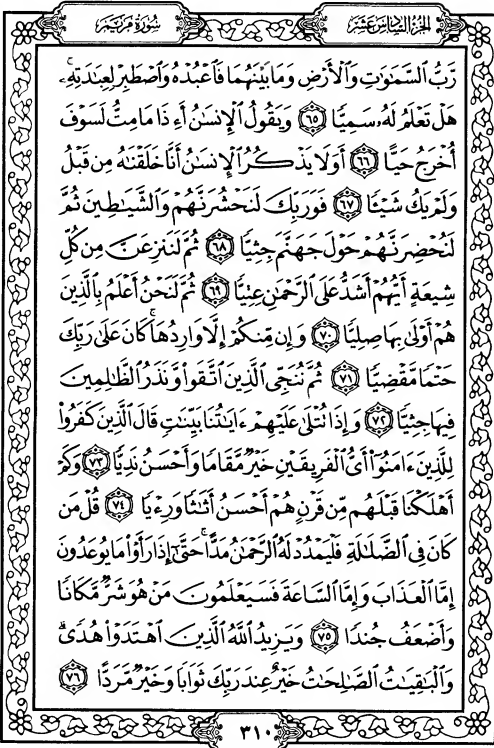 سورة مريم
الجزء السادس عشر
رَبُّ السَّمَٰوَٰتِ وَالْأَرْضِ وَمَا بَيْنَهُمَا فَاعْبُدْهُ وَاصْطَبِرْ لِعِبَٰدَتِهِۦۚ
هَلْ تَعْلَمُ لَهُۥ سَمِيًّا ٦٥ وَيَقُولُ الْإِنسَٰنُ أَءِذَا مَا مِتُّ لَسَوْفَ
أُخْرَجُ حَيًّا ٦٦ أَوَلَا يَذْكُرُ الْإِنسَٰنُ أَنَّا خَلَقْنَٰهُ مِن قَبْلُ
وَلَمْ يَكُ شَيْـًٔا ٦٧ فَوَرَبِّكَ لَنَحْشُرَنَّهُمْ وَالشَّيَٰطِينَ ثُمَّ
لَنُحْضِرَنَّهُمْ حَوْلَ جَهَنَّمَ جِثِيًّا ٦٨ ثُمَّ لَنَنزِعَنَّ مِن كُلِّ
شِيعَةٍ أَيُّهُمْ أَشَدُّ عَلَى الرَّحْمَٰنِ عِتِيًّا ٦٩ ثُمَّ لَنَحْنُ أَعْلَمُ بِالَّذِينَ
هُمْ أَوْلَىٰ بِهَا صِلِيًّا ٧٠ وَإِن مِّنكُمْ إِلَّا وَارِدُهَاۚ كَانَ عَلَىٰ رَبِّكَ
حَتْمًا مَّقْضِيًّا ٧١ ثُمَّ نُنَجِّى الَّذِينَ اتَّقَوا وَّنَذَرُ الظَّٰلِمِينَ
فِيهَا جِثِيًّا ٧٢ وَإِذَا تُتْلَىٰ عَلَيْهِمْ ءَايَٰتُنَا بَيِّنَٰتٍ قَالَ الَّذِينَ كَفَرُوا
لِلَّذِينَ ءَامَنُوٓا أَىُّ الْفَرِيقَيْنِ خَيْرٌ مَّقَامًا وَأَحْسَنُ نَدِيًّا ٧٣ وَكَمْ
أَهْلَكْنَا قَبْلَهُم مِّن قَرْنٍ هُمْ أَحْسَنُ أَثَٰثًا وَرِءْيًا ٧٤ قُلْ مَن
كَانَ فِى الضَّلَٰلَةِ فَلْيَمْدُدْ لَهُ الرَّحْمَٰنُ مَدًّاۚ حَتَّىٰٓ إِذَا رَأَوْا مَا يُوعَدُونَ
إِمَّا الْعَذَابَ وَإِمَّا السَّاعَةَ فَسَيَعْلَمُونَ مَنْ هُوَ شَرٌّ مَّكَانًا
وَأَضْعَفُ جُندًا ٧٥ وَيَزِيدُ اللَّهُ الَّذِينَ اهْتَدَوْا هُدًىۗ
وَالْبَٰقِيَٰتُ الصَّٰلِحَٰتُ خَيْرٌ عِندَ رَبِّكَ ثَوَابًا وَخَيْرٌ مَّرَدًّا ٧٦
٣١٠